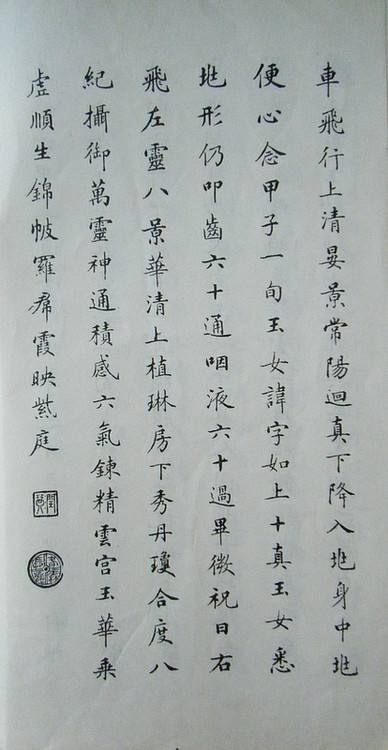 車飛行上清晏景常陽迴真下降入兆身中兆
便心念甲子一旬玉女諱字如上十真玉女悉
兆形仍叩齒六十通咽液六十過畢微祝曰右
飛左靈八景華清上植琳房下秀丹瓊合度八
紀攝御萬靈神通積感六氣鍊精雲宮玉華乘
虛順生錦帔羅帬霞映紫庭